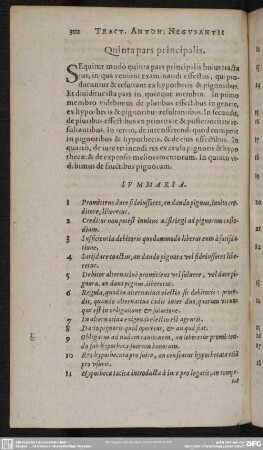 302 TRACT. ANTON. NEGVSANTII
Quinta pars principalis.
SEquitur modo quinta pars principalis huius tracta
tus, in qua veniunt examinandi effectus, qui pro-
ducuntur & resultant ex hypothecis & pignoribus.
Et diuiditur ista pars in quinque membra. In primo
membro videbimus de pluribus effectibus in genere,
ex hypothecis & pignoribus resultantibus. In secundo,
de pluribus effectibus ex prioritate & posterioritate re-
sultantibus. In tertio, de iure offerendi quod competit
in pignoribus & hypothecis, & de eius effectibus. In
quarto, de iure retinendi res ex causa pignoris & hypo
thecæ: & de expensis meliorementorum. In quinto vi-
debimus de fructibus pignorum.
SVMMARIA.
1 Promittens dare fideiussores, an dando pignus, inuito cre
ditore, liberetur.
2 Creditor non potest inuitus astringi ad pignorum custo-
diam.
3 Sufficientia debitoris quodammodo liberat eum à satisda-
tione.
4 Satisdare tractus, an dando pignora vel fideiussores libe-
retur.
5 Debitor alternatiuè promittens vel soluere, vel dare pi-
gnora, an dans pignus liberetur.
6 Regula, quòd in alternatiuis electio sit debitoris: proce-
dit, quando alternatiua cadit inter duo, quorum vnum-
que est in obligatione & solutione.
7 In alternatiua exigendi electio est agentis.
8 Datio pignoris quid operetur, & an quid fiat.
9 Obligatus ad nudam cautionem, an liberetur promitten-
do sub hypotheca suorum bonorum.
10 Res hypothecata pro dote, an censeatur hypothecata etiã
pro vsuris.
11 Hypotheca tacita introducta à iure pro legatis, an compe-
tat